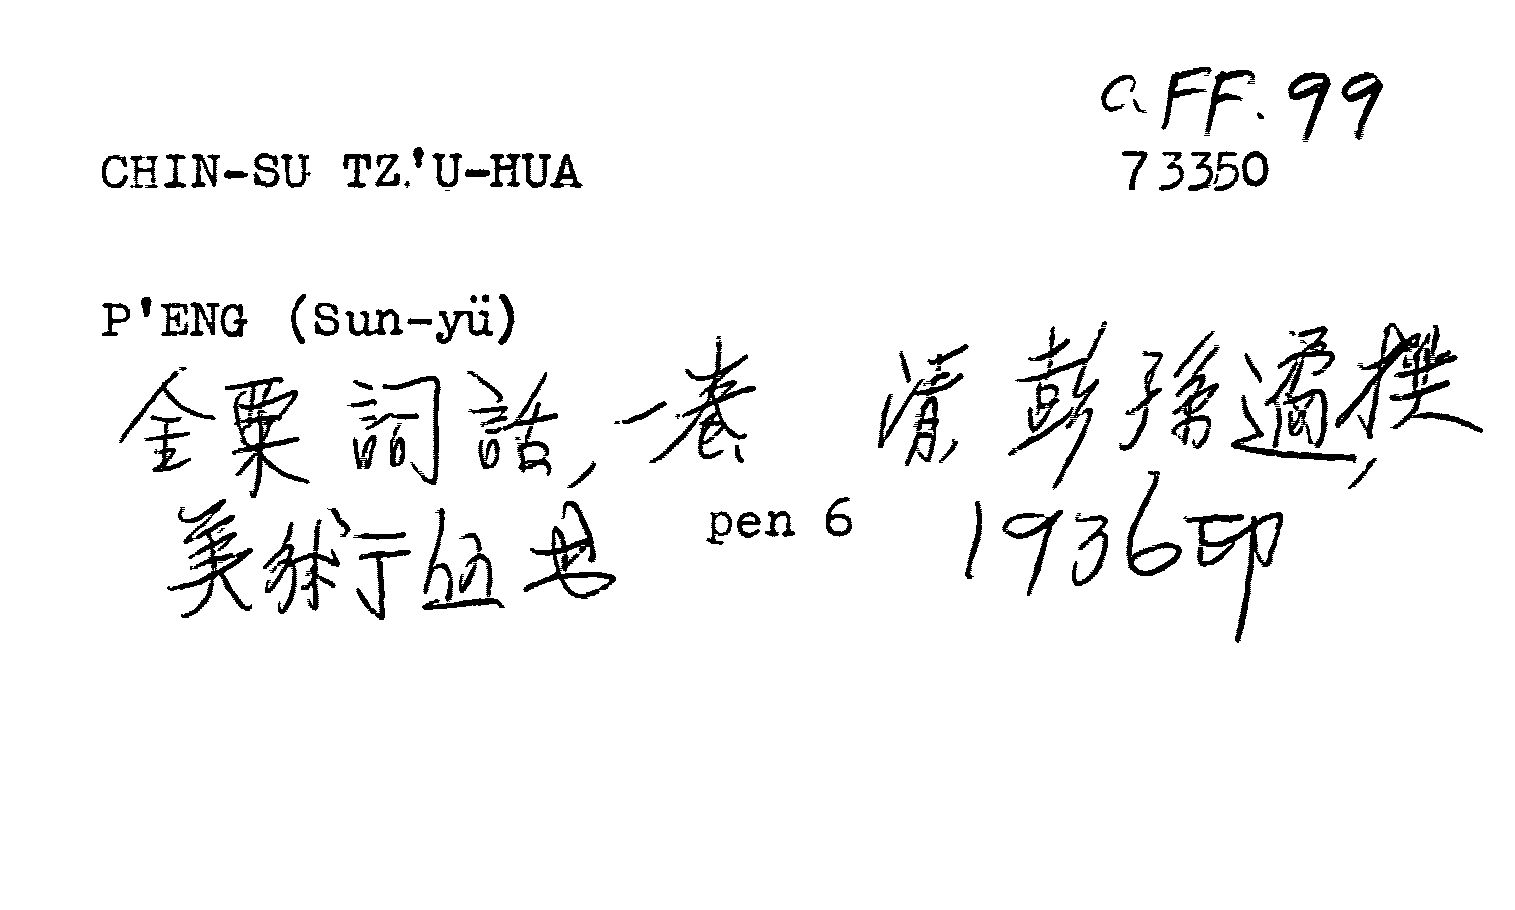 C.FF.99
CHIN-SU TZ'U-HUA 73350
P'ENG (Sun-yü)
金粟詞話,一卷 清彭孫遹撰,
美術叢書 pen 6 1936印